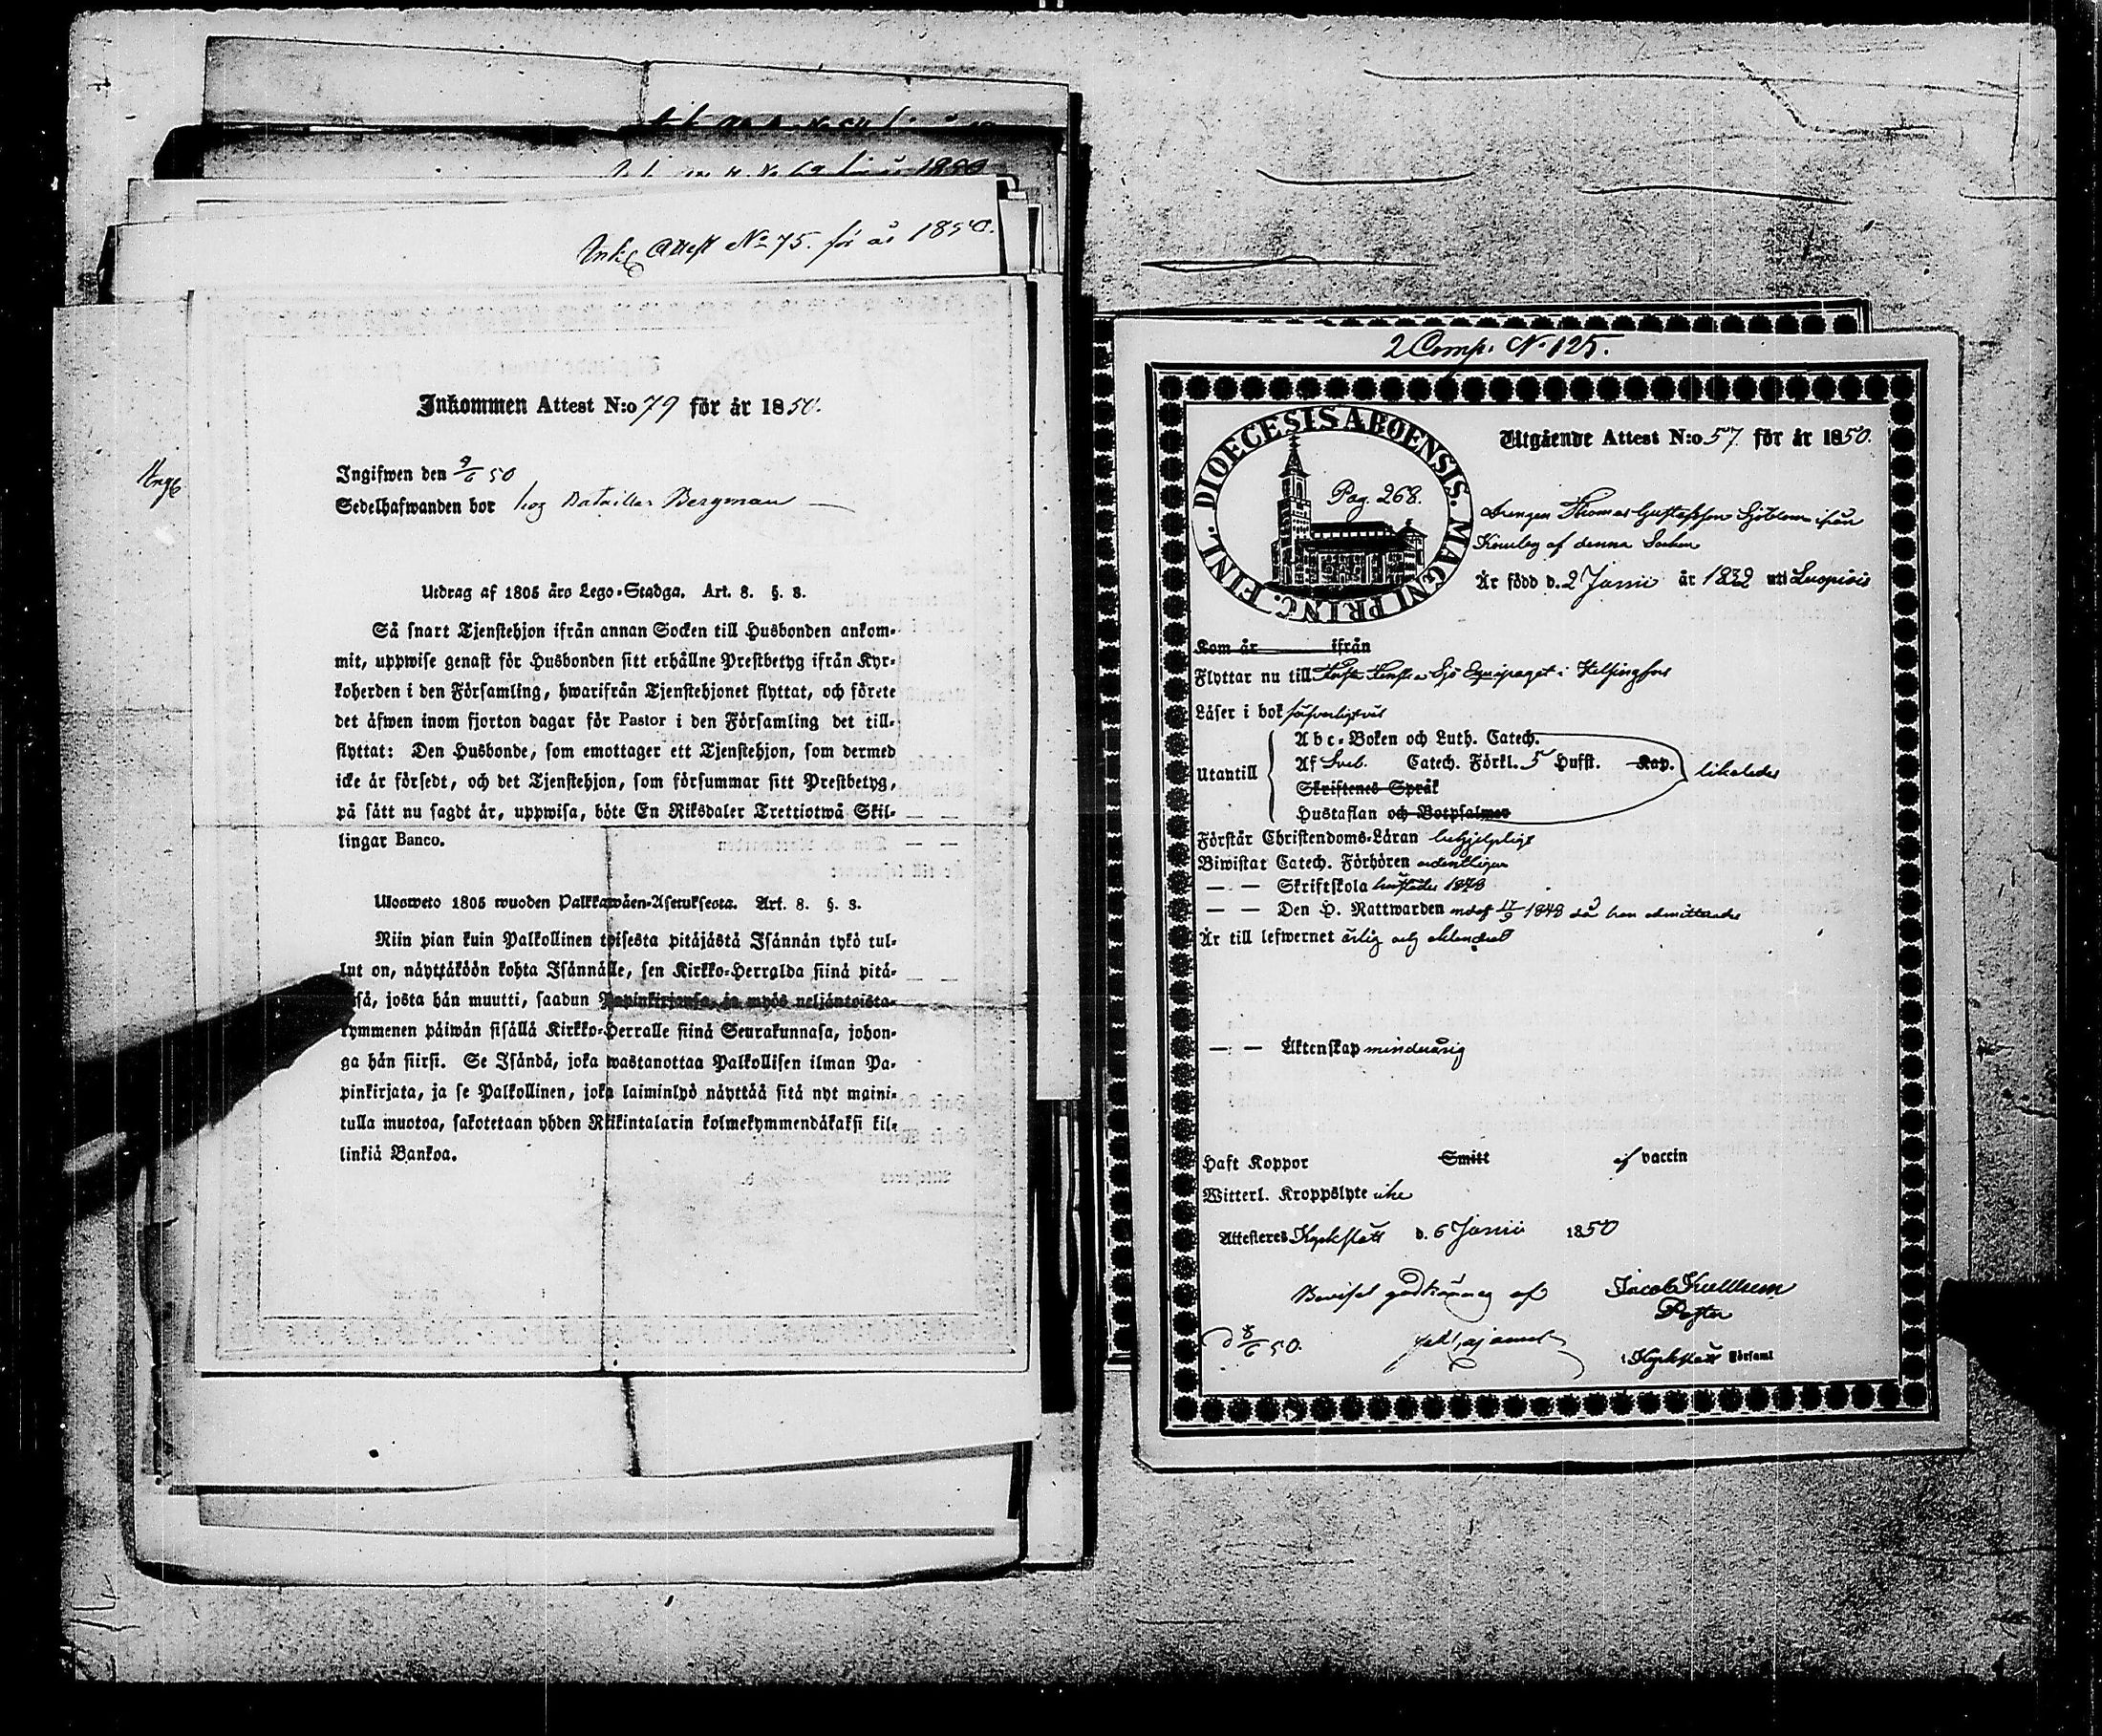 Inkc Attest No 75. för år 1850.
Inkommen Attest N:o 79 för år 1850.
Ingifwen den 9/6 50
Sedelhafwanden bor hos Bergman
Utdrag af 1805 års Lego-Stadga. Art. 8. §. 8.
Så snart Tjenstehjon ifrån annan Socken till Husbonden ankom-
mit, uppwise genast för Husbonden sitt erhållne Prestbetyg ifrån Kyr-
koherden i den Församling, hwarifrån Tjenstehjonet flyttat, och förete
det äfwen inom fjorton dagar för Pastor i den Församling det till-
flyttat: Den Husbonde, som emottager ett Tjenstehjon, som dermed
icke är försedt, och det Tjenstehjon, som försummar sitt Prestbetyg,
på sätt nu sagdt är, uppwisa, böte En Riksdaler Trettiotwå Skil-
lingar Banco.
Uloosweto 1805 wuoden Palkkawäen-Asetuksesta. Art. 8. §. 8.
Niin pian kuin Palkollinen toisesta pitäjästä Isännän tykö tul-
lut on, näyttäköön kohta Isännälle, sen Kirkko-Herralda siinä pitä-
jäsä, josta hän muutti, saadun Papinkirjansa, ja myös neljäntoista-
kymmenen päiwän sisällä Kirkko-Herralle siinä Seurakunnasa, johon-
ga hän siirsi. Se Isändä, joka wastanottaa Palkollisen ilman Pa-
pinkirjata, ja se Palkollinen, joka laiminlyö näyttää sitä nyt maini-
tulla muotoa, sakotetaan yhden Riikintalarin kolmekymmendäkaksi kil-
linkiä Bankoa.
2 Comp. No 125.
DIOECESIS ABOENSIS. MAGNI PRINC. FINL.
Pag. 268.
Utgående Attest N:o 57. för år 1850.
Drengen Thomas Gustafsson Sjöblom ifrån
af denna Socken
Är född d. 2 Junii år 1832 uti Luopiois
Kom år ifrån
Flyttar nu till Första Finska Sjö Equipaget i Helsingfors
Läser i bok
Utantill
Abc-Boken och Luth. Catech.
Af Sveb. Catech. Förkl. 5 Hufst. Kap. likaledes
Skriftenes Språk
Hustaflan och Botpsalmer
Förstår Christendoms-Läran behjelpligt
Biwistat Catech. Förhören ordentligen
— — Skriftskola 1848
— — Den H. Nattwarden 17/9 1848 då han admitterades
Är till lefwernet ärlig och oklandrad
— — Äktenskap minderårig
Haft Koppor Smitt ej vaccin
Witterl. Kroppslyte icke
Attesteras Kyrkslätt d. 6 Junii 1850
Beviset godkännes af
Jacob
Pastor
d 8/6 50.
i Kyrkslätt Församl